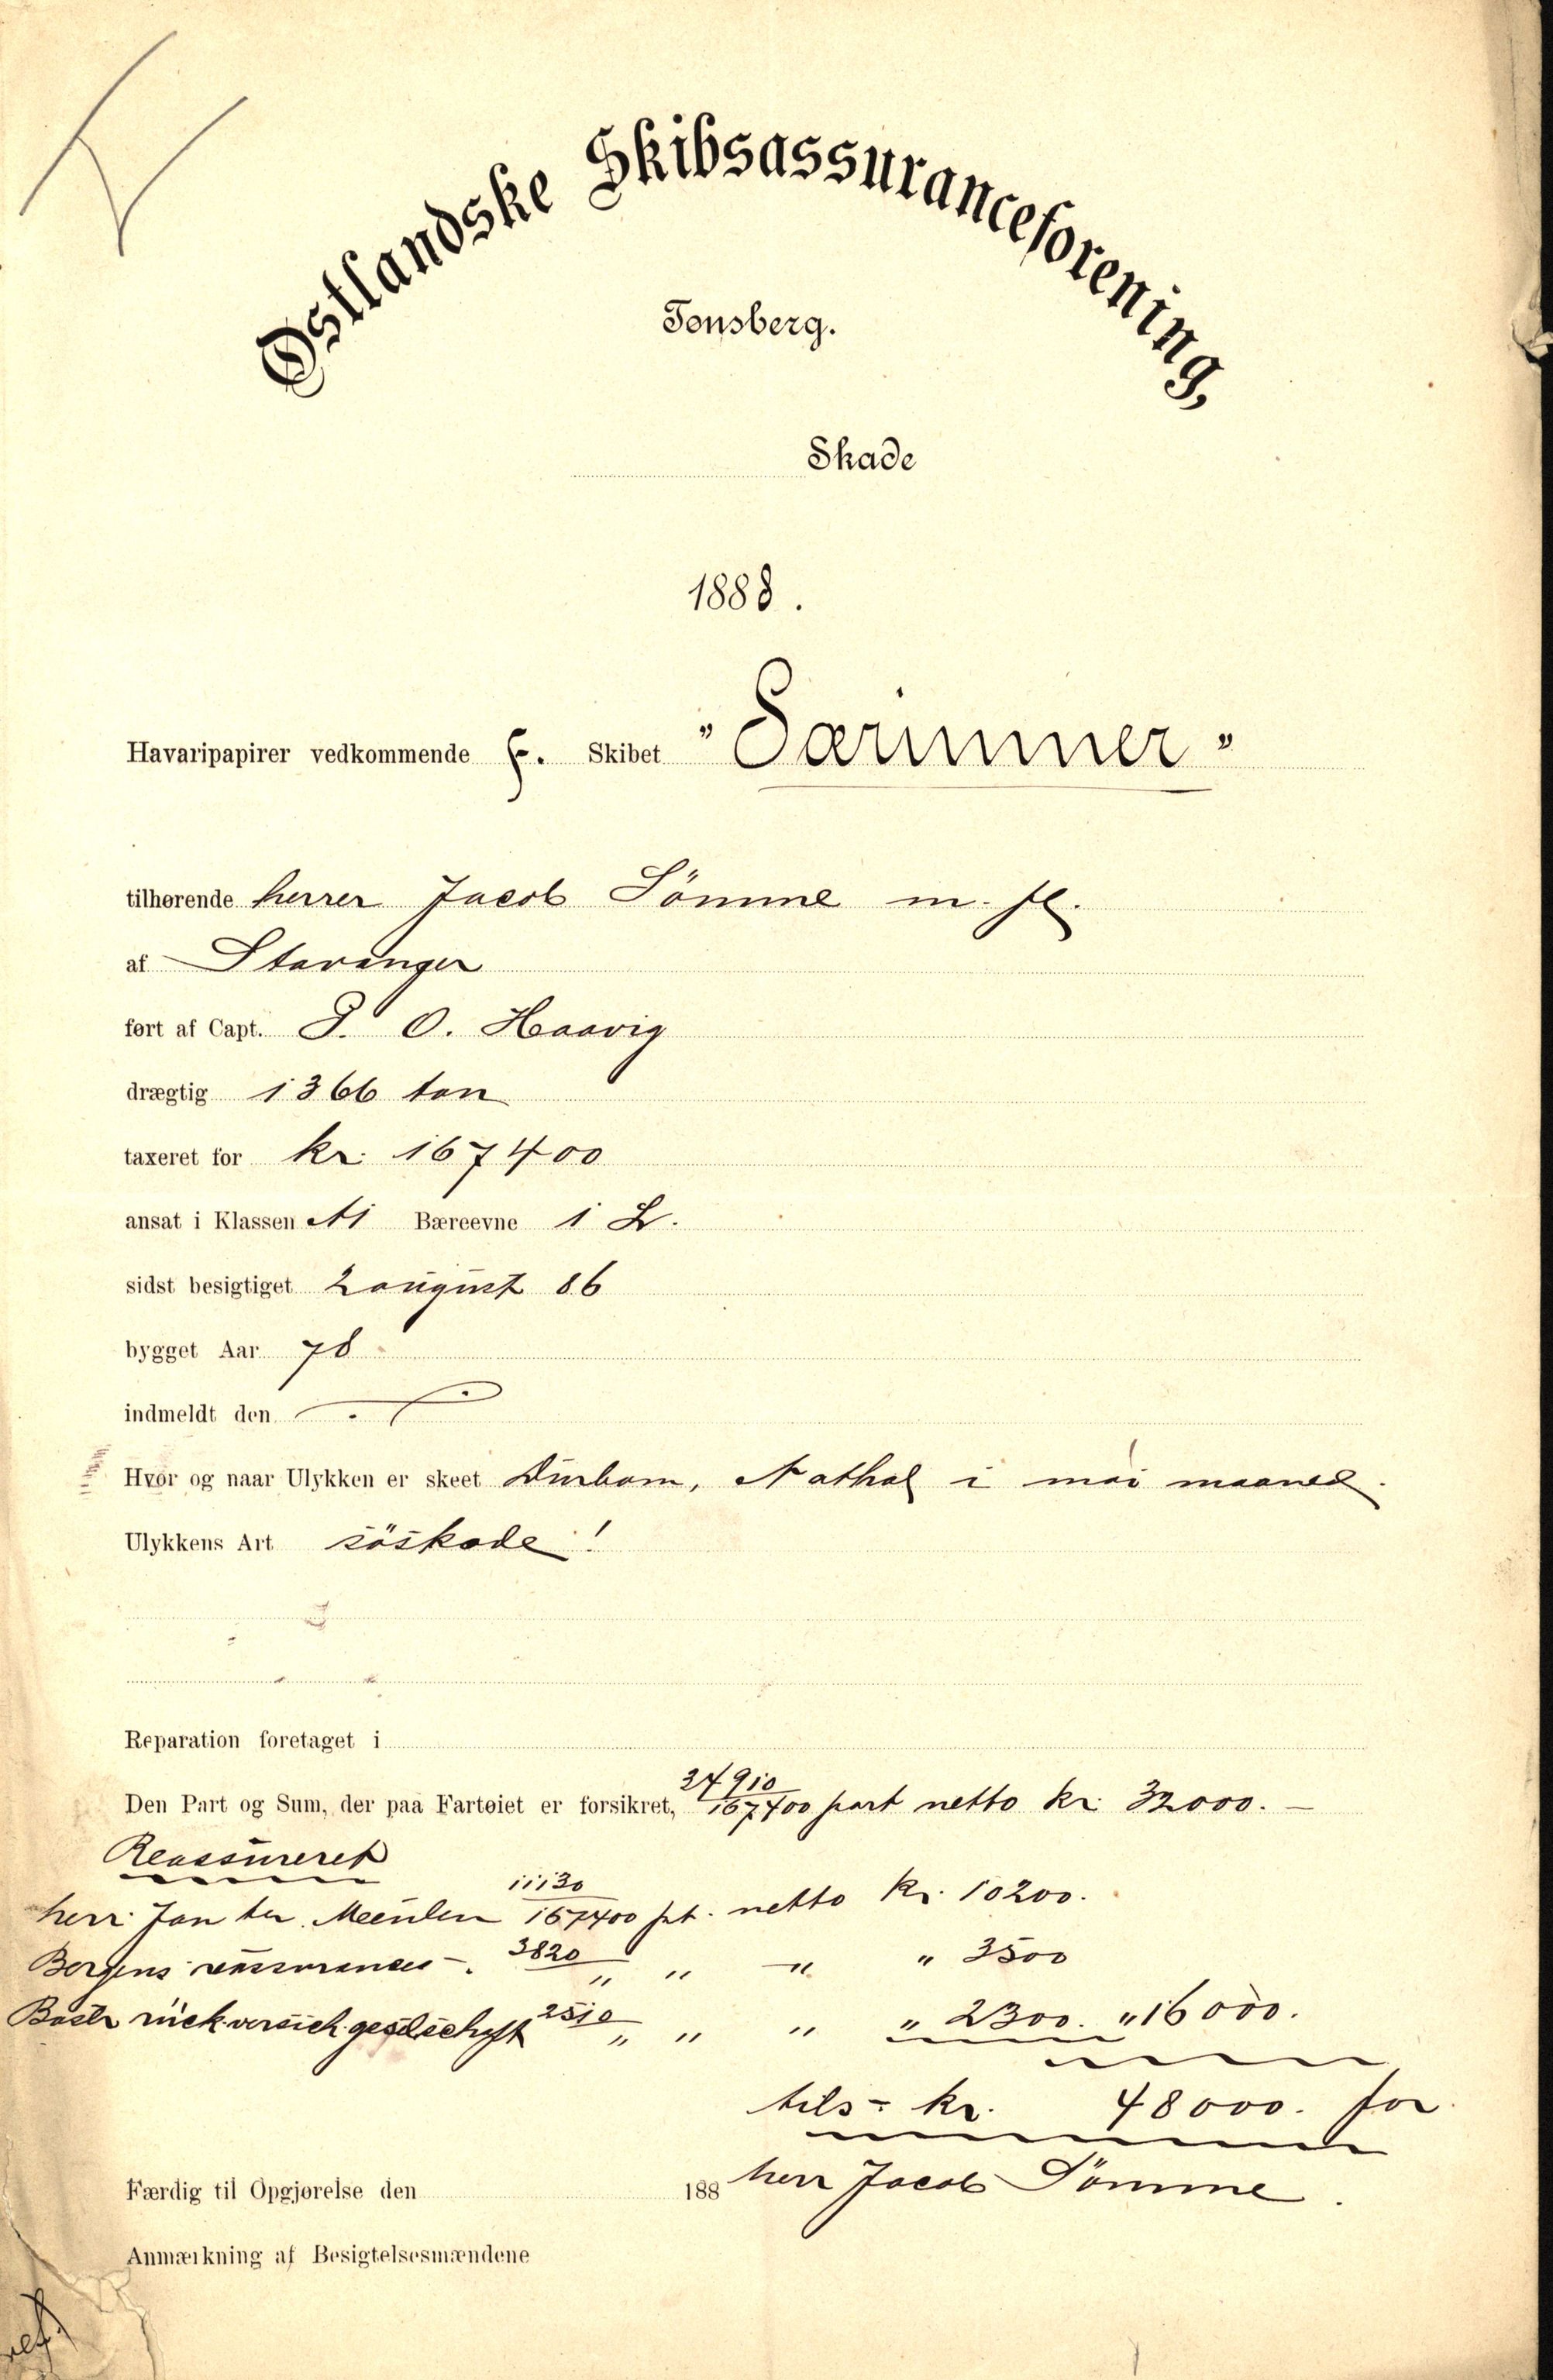 Østlandske Skibsassuranceforening,
Tønsberg.
Skade
1888.
Havaripapirer vedkommende F. Skibet "Særimner"
tilhørende herrer Jacob Sömme m. fl.
af Stavanger
ført af Capt. P. O. Haavig
drægtig 1366 ton
taxeret for kr. 167400
ansat i Klassen A1 Bæreevne 1 L.
sidst besigtiget 2 august 86
bygget Aar 78
indmeldt den
Hvor og naar Ulykken er skeet Durban, Nathal i mai maaned.
Ulykkens Art söskade!
Reparation foretaget i
Den Part og Sum, der paa Fartøiet er forsikret, 34910/167400 part netto kr. 32000. —
Reassureret
herr Jan ter Meulen 11130/167400 pt. netto kr. 10200.
Bergens reassurance -. 3820/" " " " 3500
Basler rückversich. gesellschaft 2510/" " " " 2300. " 16000.
tils- kr. 48000. for
Færdig til Opgjørelse den 188 herr Jacob Sömme.
Anmærkning af Besigtelsesmændene